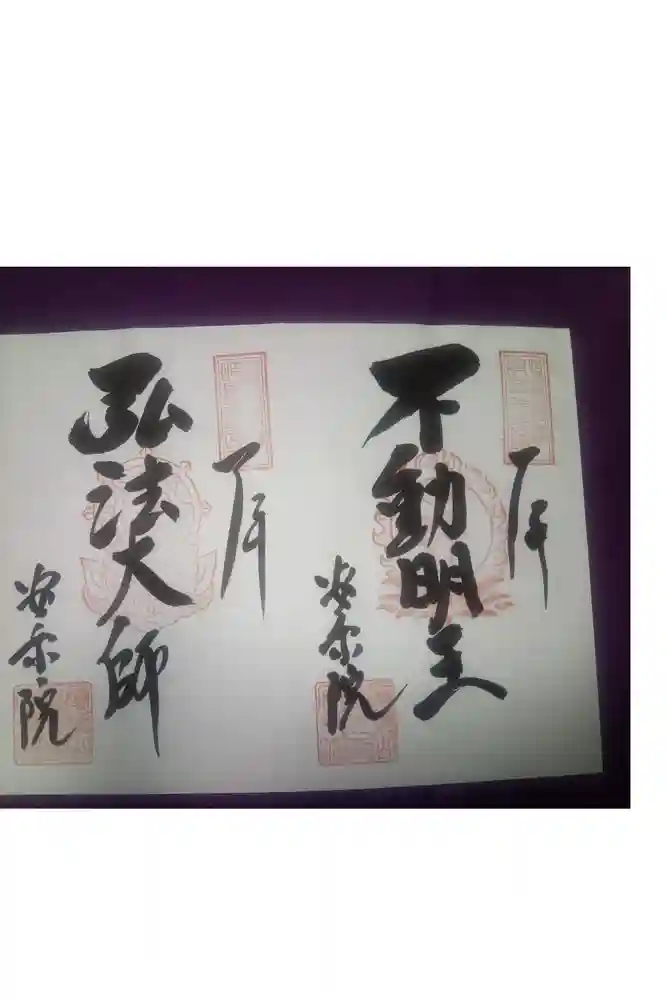 奉拝
不動明王
安楽院
奉拝
弘法大師
安楽院